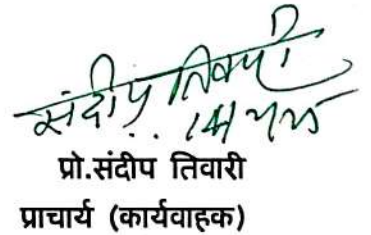 संदीप तिवारी
प्रो.संदीप तिवारी
प्राचार्य (कार्यवाहक)